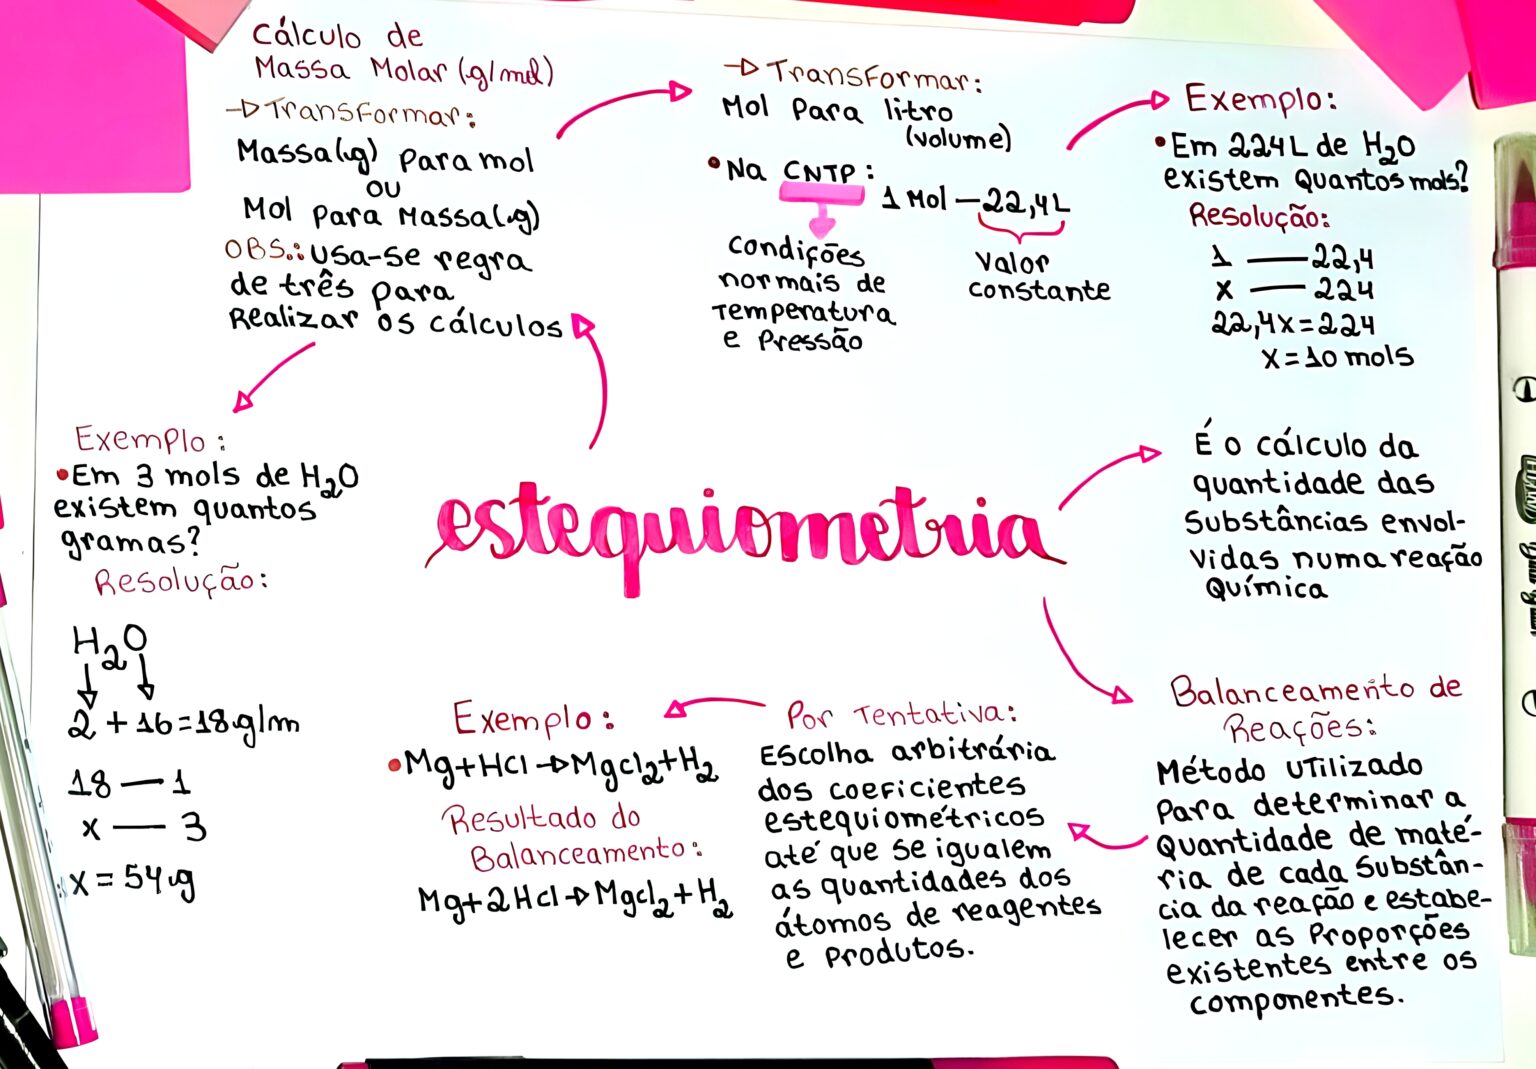 Cálculo de
Massa Molar (g/mol)
→Transformar:
Massa(g) para mol
ou
Mol para Massa(g)
OBS.: usa-se regra
de três para
Realizar os cálculos
→Transformar:
Mol para litro
(volume)
•Na CNTP:
1 Mol — 22,4L
Condições
normais de
Temperatura
e Pressão
Valor
constante
Exemplo:
•Em 224L de H₂O
existem quantos mols?
Resolução:
1 — 22,4
x — 224
22,4x=224
x=10 mols
Exemplo:
•Em 3 mols de H₂O
existem quantos
gramas?
Resolução:
H₂O
2 + 16=18g/m
18 — 1
x — 3
x = 54g
estequiometria
É o cálculo da
quantidade das
Substâncias envol-
vidas numa reação
Química
Balanceamento de
Reações:
Método utilizado
para determinar a
Quantidade de maté-
ria de cada Substân-
cia da reação e estabe-
lecer as Proporções
existentes entre os
componentes.
Por Tentativa:
Escolha arbitrária
dos coeficientes
estequiométricos
até que se igualem
as quantidades dos
átomos de reagentes
e Produtos.
Exemplo:
•Mg+HCl→Mgcl₂+H₂
Resultado do
Balanceamento:
Mg+2HCl→Mgcl₂+H₂